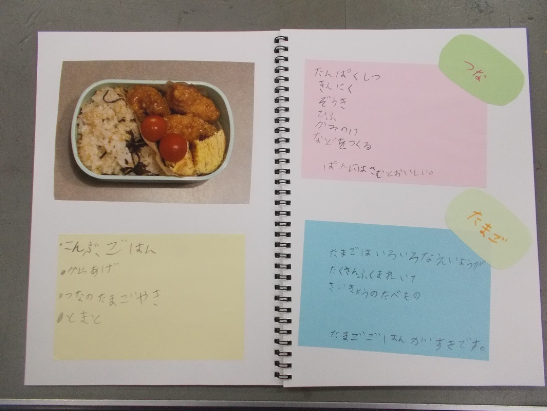 ・こんぶごはん
・からあげ
・つなのたまごやき
・とまと
つな
たんぱくしつ
きんにく
ぞうき
かみのけ
などをつくる
ぱんにはさむとおいしい。
たまご
たまごはいろいろなえいようが
たくさんふくまれていて
さいきょうのたべもの
たまごごはんがすきです。